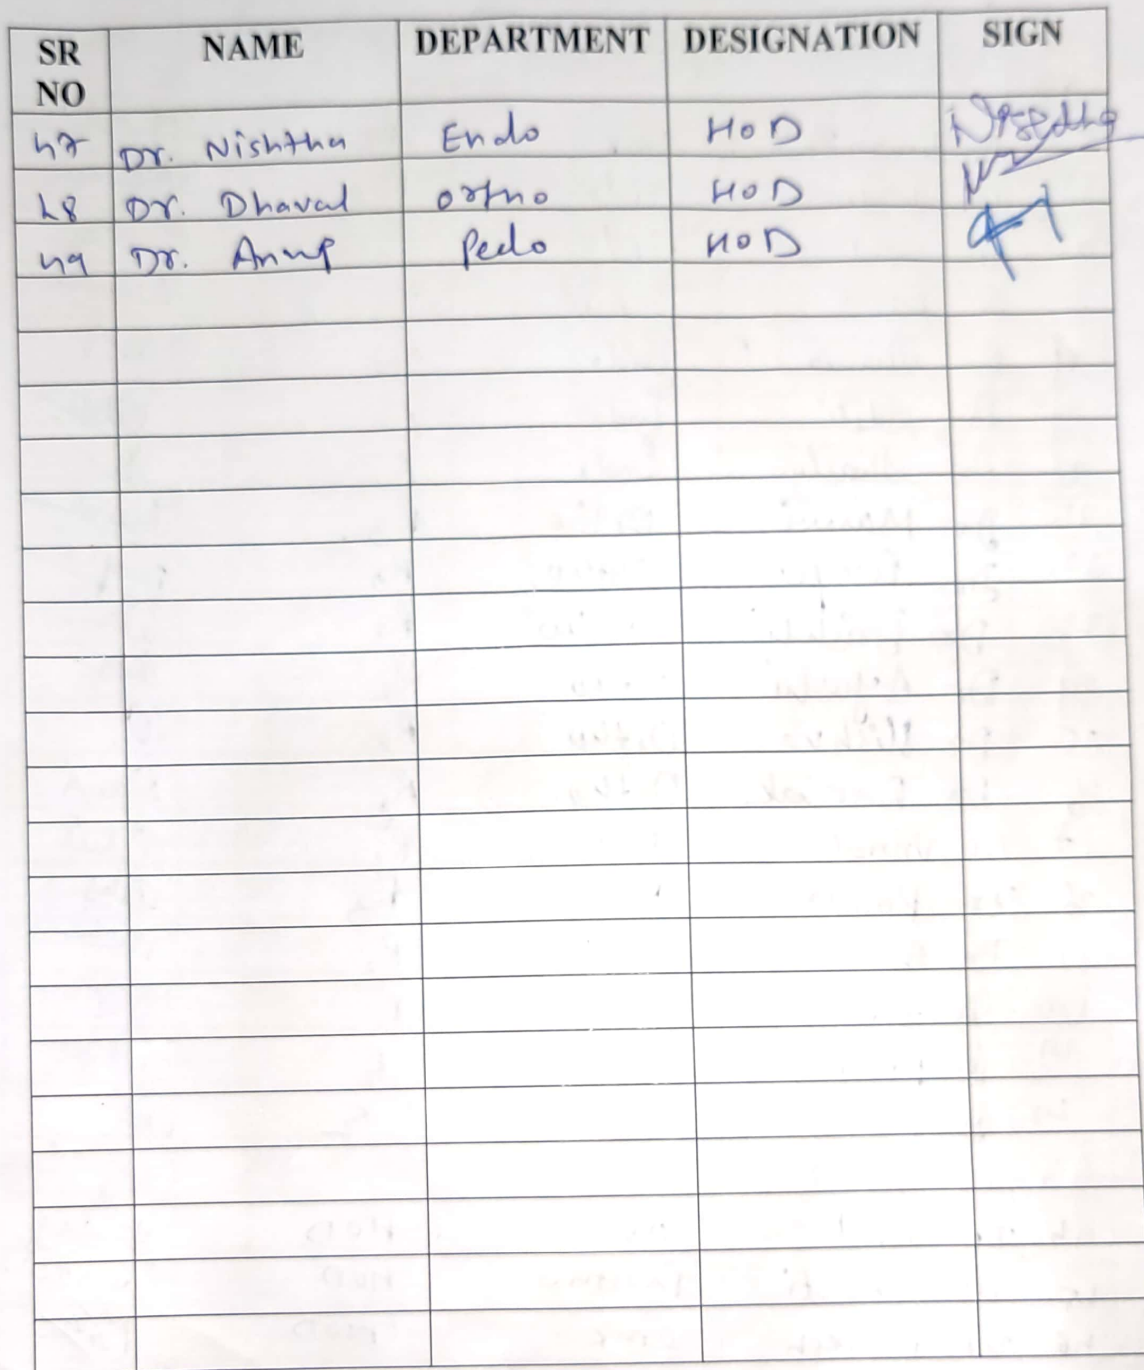 SR NO NAME DEPARTMENT DESIGNATION SIGN
47 Dr. Nishtha Endo HOD
48 Dr. Dhaval ortho HOD
49 Dr. Anup Pedo HOD